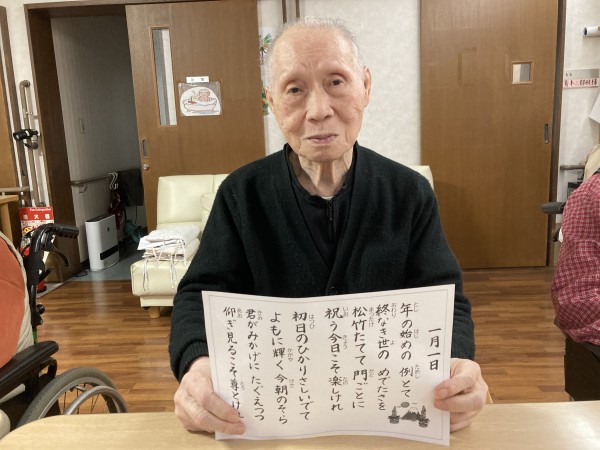 一月一日
年の始めの 例とて
終なき世の めでたさを
松竹たてて 門ごとに
祝う今日こそ楽しけれ
初日のひかりさしいでて
よもに輝く 今朝のそら
君がみかげに たぐえつつ
仰ぎ見るこそ尊とけれ